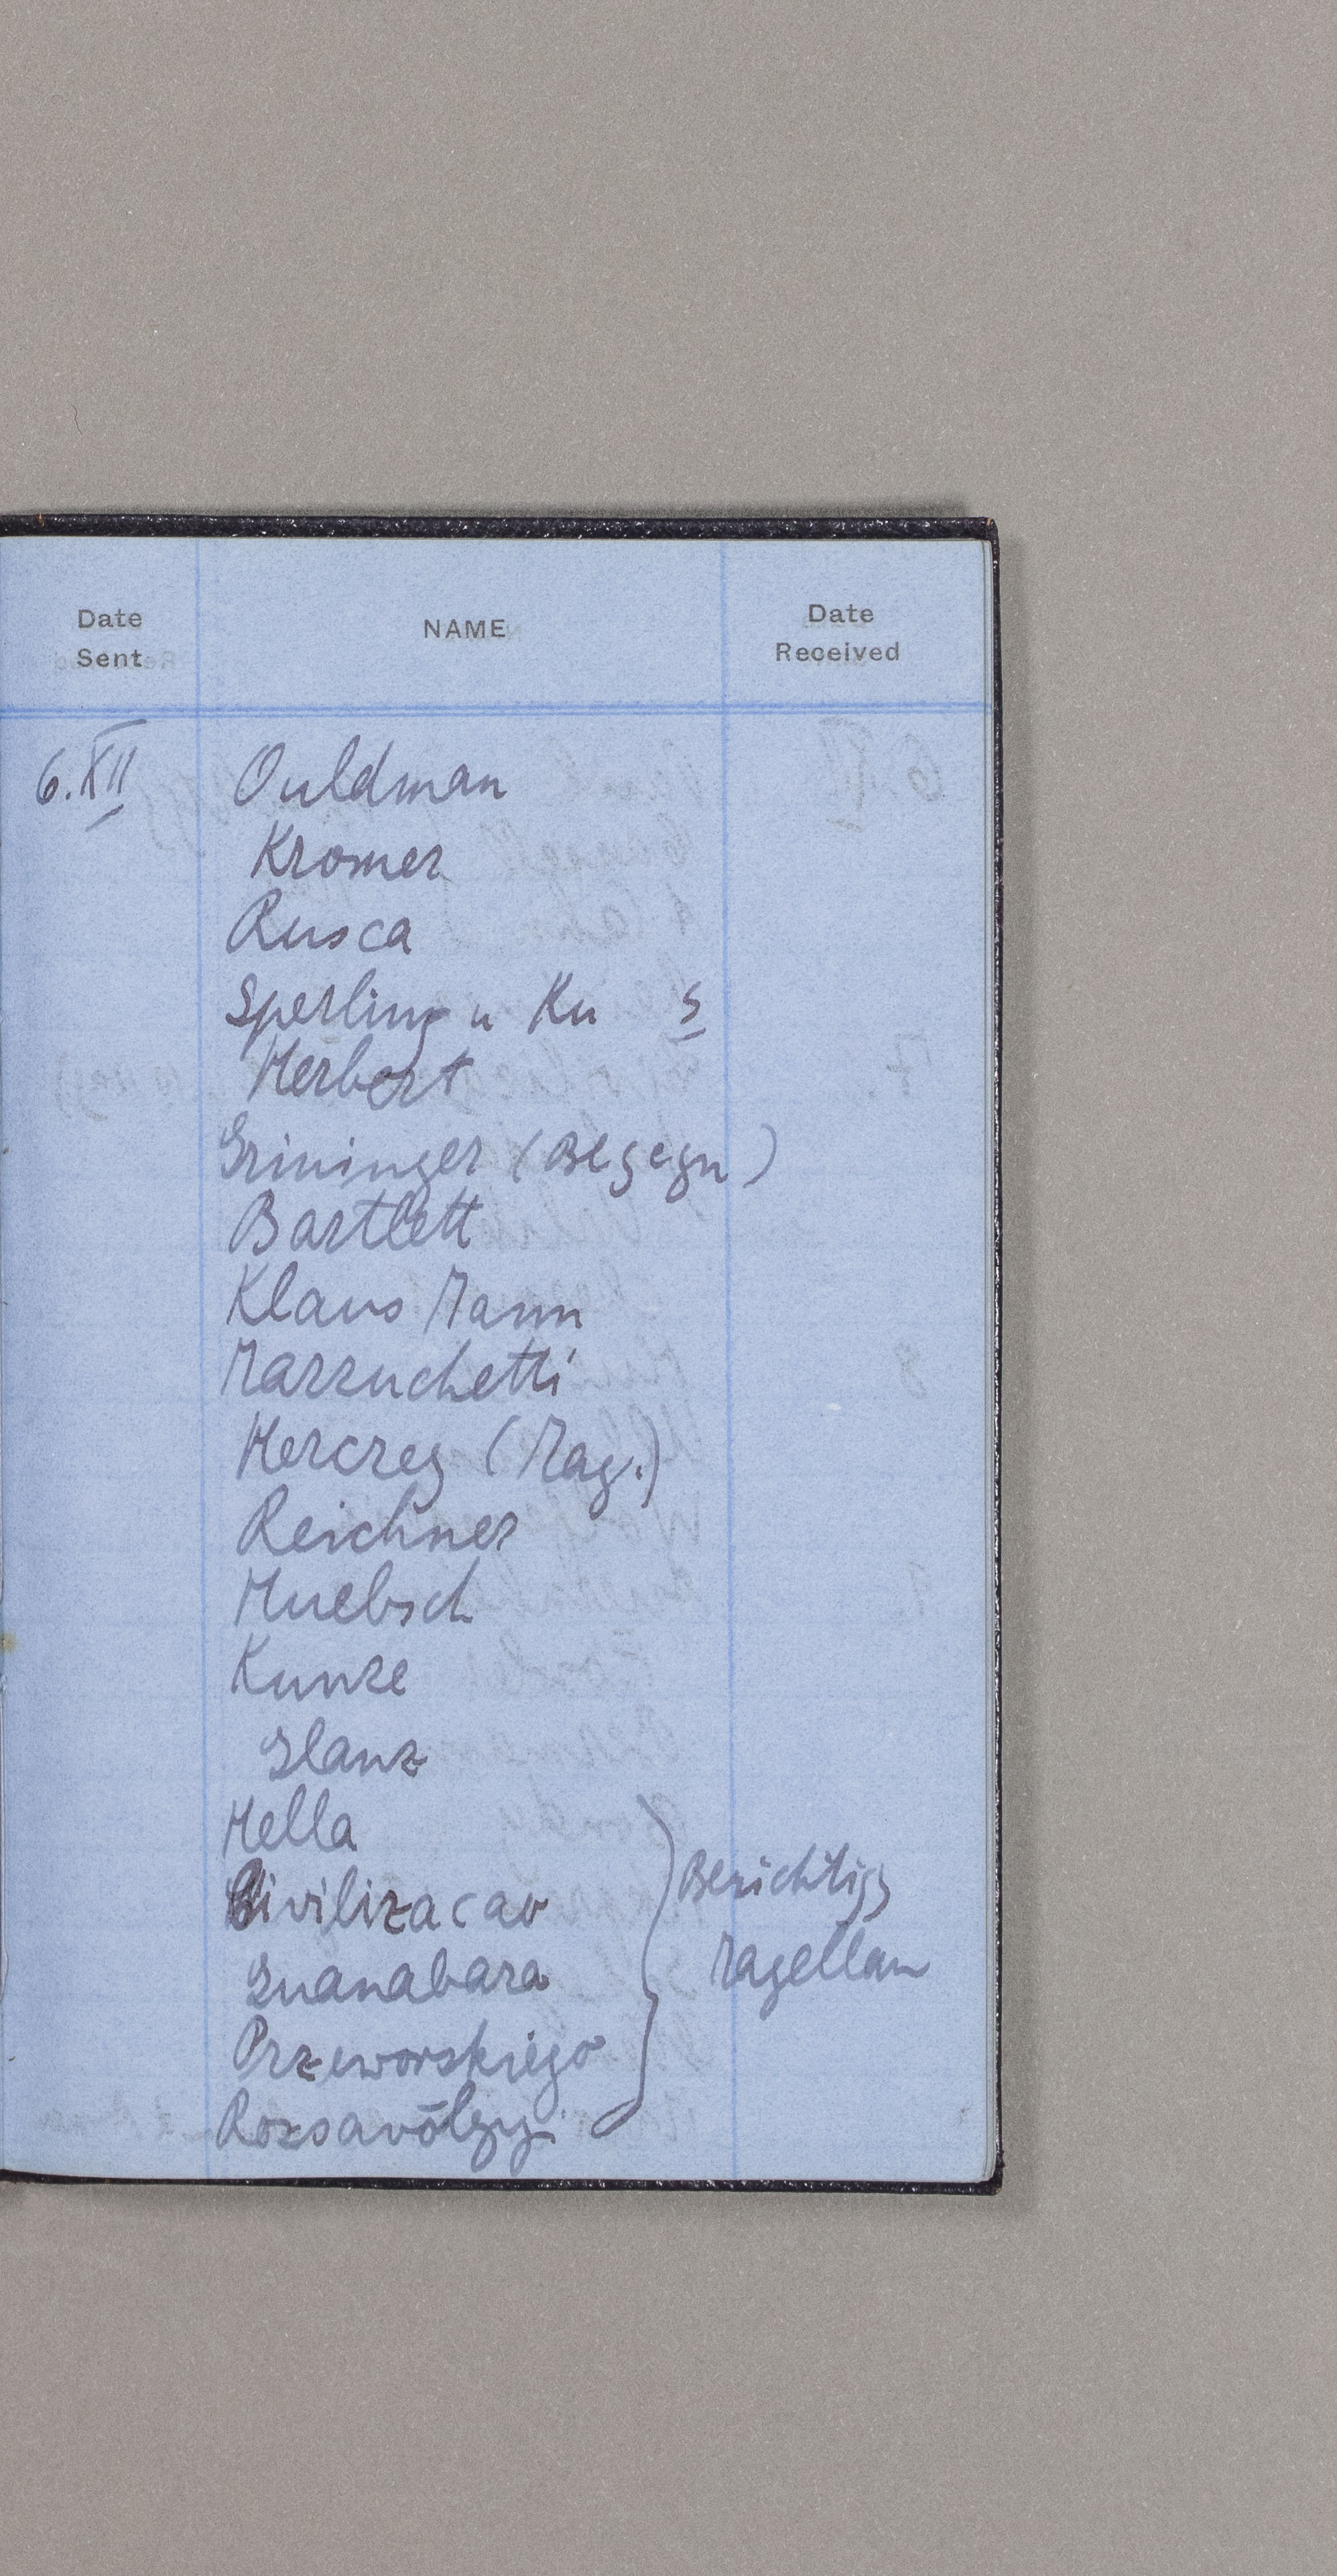 Date Sent NAME Date Received
6.XII Ouldman
Kromer
Rusca
Sperling u Ku S
Herbert
Grininger (Begegn)
Bartlett
Klaus Mann
Mazzuchetti
Herczeg (Mag.)
Reichner
Huebsch
Kunze
Glanz
Hella
Civilizacao Berichtigg
Guanabara Magellan
Przeworskiego
Rozsavölgyi